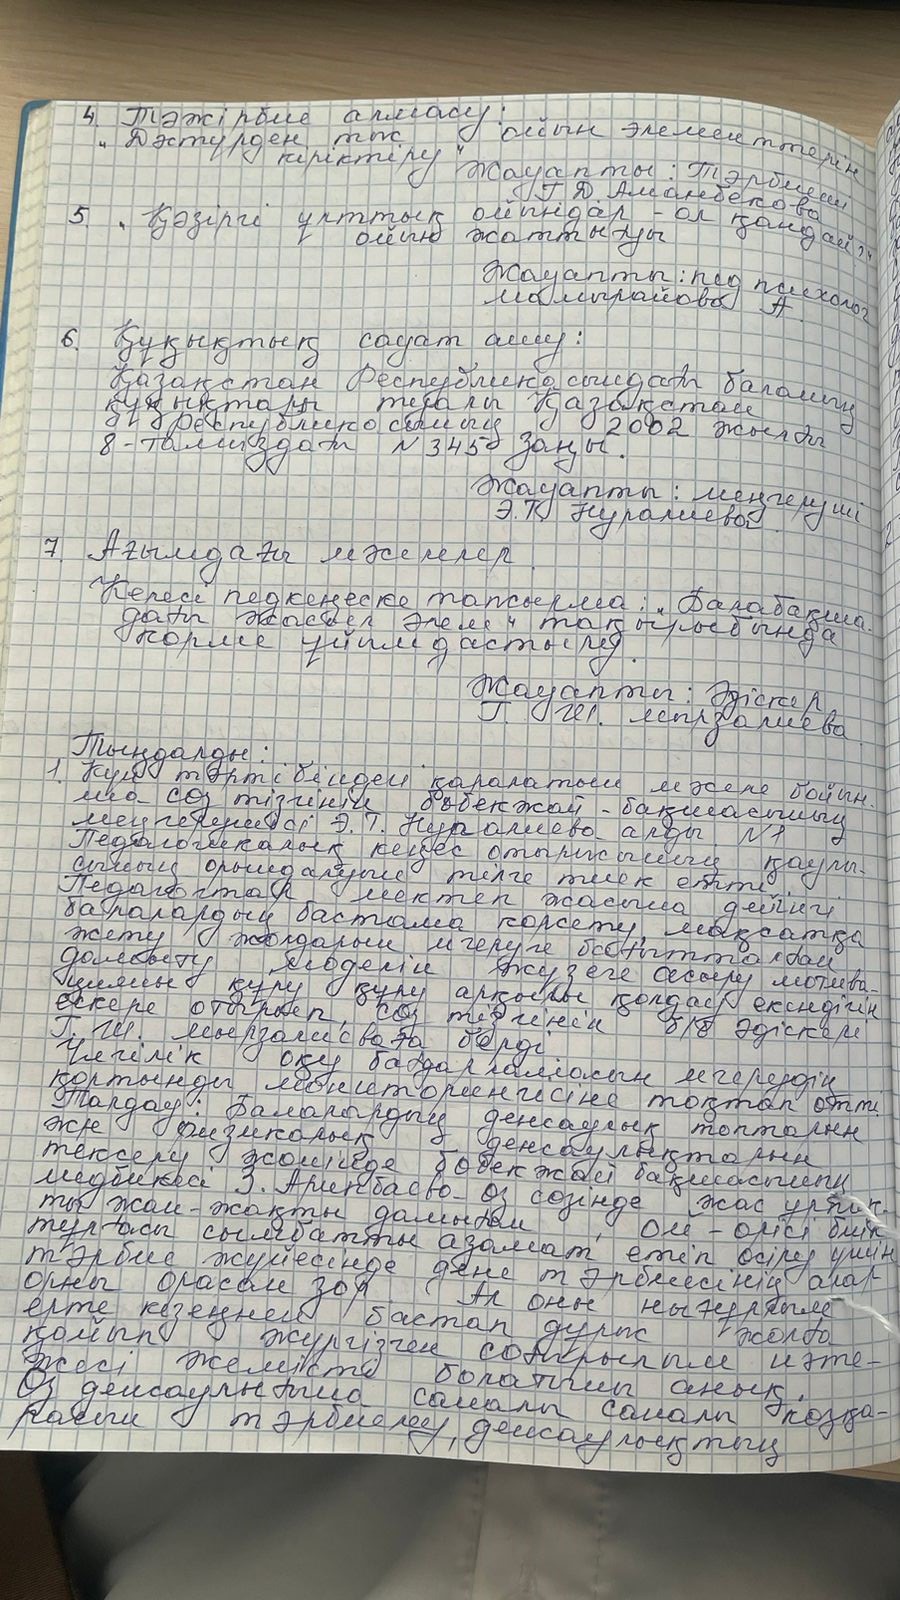 4. Тәжірбие алмасу:
„Дәстүрден тыс ойын элементтерін
кіріктіру" Жауапты: Тәрбиеші
Г.Д Аманбекова
5. „Қазіргі ұлттық ойындар - ол қандай?"
ойын жаттығу
Жауапты: пед психолог
Мамырайова А.
6. Құқықтық сауат ашу:
Қазақстан Республикасындағы баланың
құқықтары туралы Қазақстан
Республикасының 2002 жылғы
8-тамыздағы №345 Заңы.
Жауапты: меңгеруші
Э.Т. Нуралиева
7. Ағымдағы мәселелер
Келесі педкеңеске тапсырма: „Балабақша-
дағы жасыл әлем" тақырыбында
көрме ұйымдастыру.
Жауапты: Әдіскер
Г. Ш. Мырзалиева
Тыңдалды:
1. Күн тәртібінден қаралатын мәселе бойын-
ша сөз тізгінін бөбекжай-бақшасының
меңгерушісі Э.Т. Нуралиева алды №1
Педагогикалық кеңес отырысының қаулы-
сының орындалуын тілге тиек етті.
Педагогтар мектеп жасына дейінгі
балалардың бастама көрсету, мақсатқа
жету жолдарын игеруге бағытталған
дамыту моделін жүзеге асыру мотива-
циясын құру құру арқылы қолдау екендігін
ескере отырып, сөз тізгінін б/б әдіскері
Г. Ш. Мырзалиеваға берді
Үлгілік оқу бағдарламасын игерудің
қортынды мониторингісіне тоқтап өтті
Талдау: Балалардың денсаулық топтарын
және физикалық денсаулықтарын
тексеру жөнінде бөбекжай бақшасының
медбикесі З. Аринбаева өз сөзінде жас ұрпақ-
ты жан-жақты дамыған, ой-өрісі биік
тұлғасы сымбатты азамат етіп өсіру үшін
тәрбие жүйесінде дене тәрбиесінің алар
орны орасан зор. Ал оны
ерте кезеңнен бастап дұрыс жолға
қойып жүргізген сайын нәти-
жесі жемісті болатыны анық.
Өз денсаулығына саналы саналы көзқа-
расын тәрбиелеу, денсаулықтың